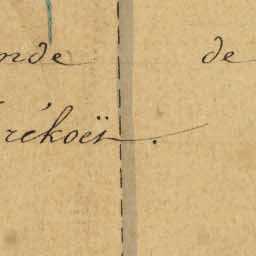 nde de
rékoës.